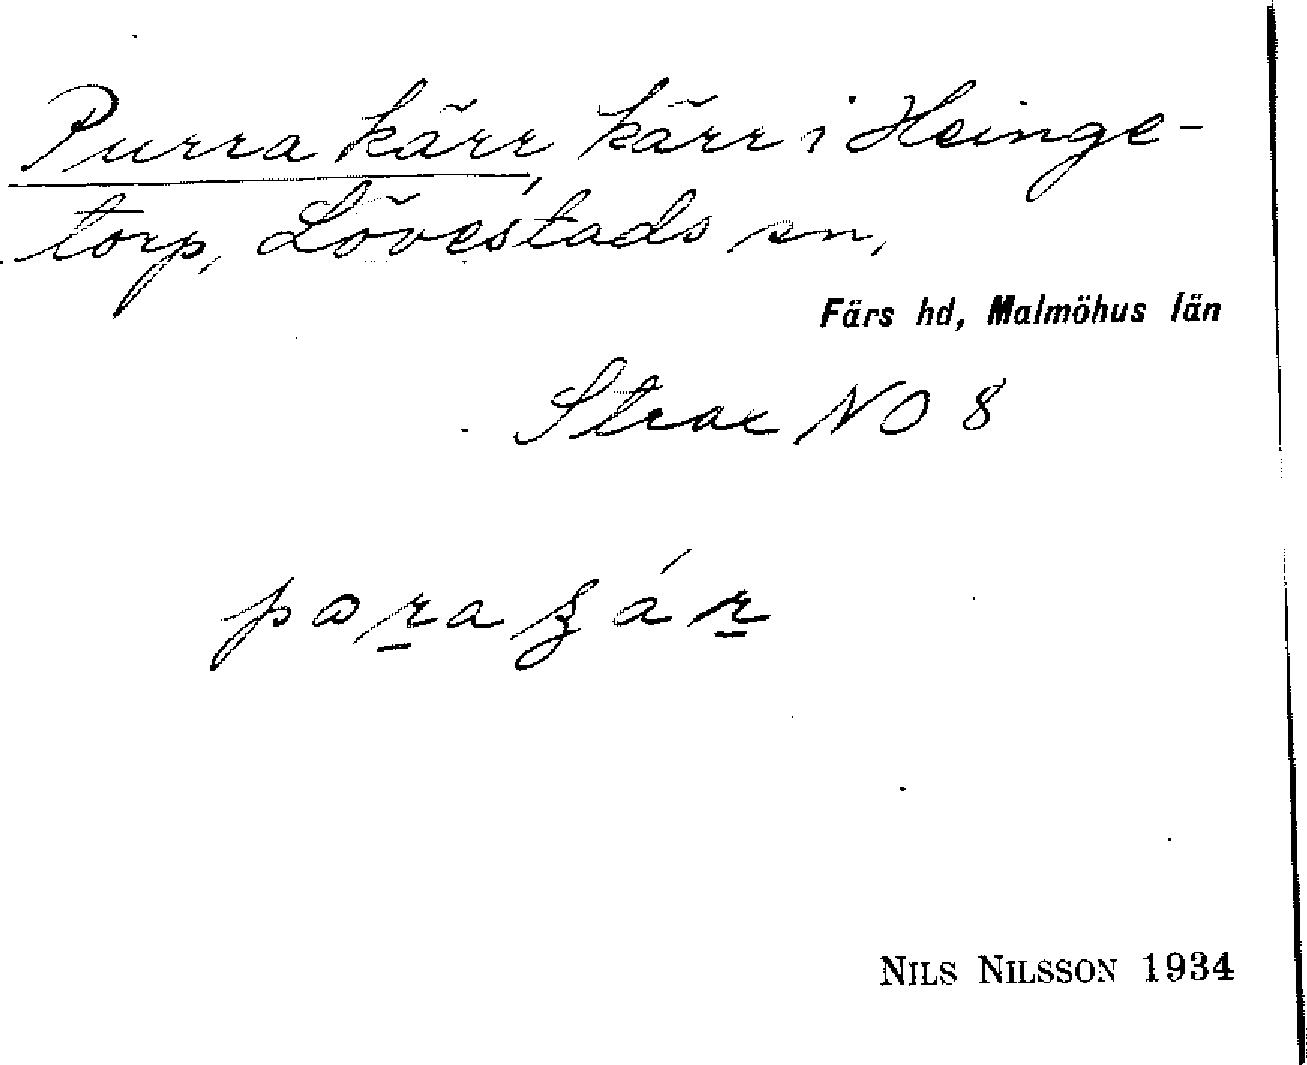 Purrakärr, kärr i Heinge-
torp, Lövestads sn,
Färs hd, Malmöhus län
NO 8
NILS NILSSON 1934